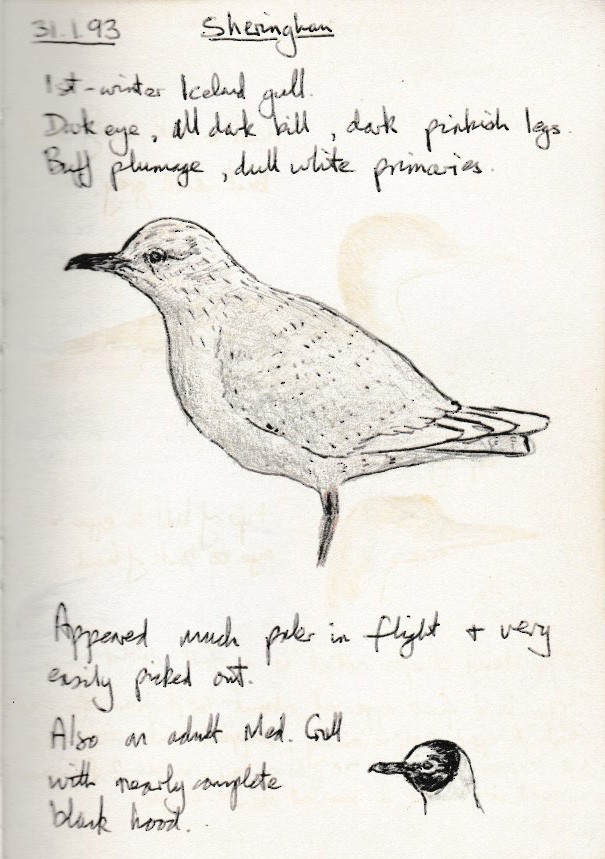 31.1.93 Sheringham
1st-winter Iceland gull.
Dark eye, all dark bill, dark pinkish legs.
Buff plumage, dull white primaries.
Appeared much paler in flight + very
easily picked out.
Also an adult Med. Gull
with nearly complete
black hood.